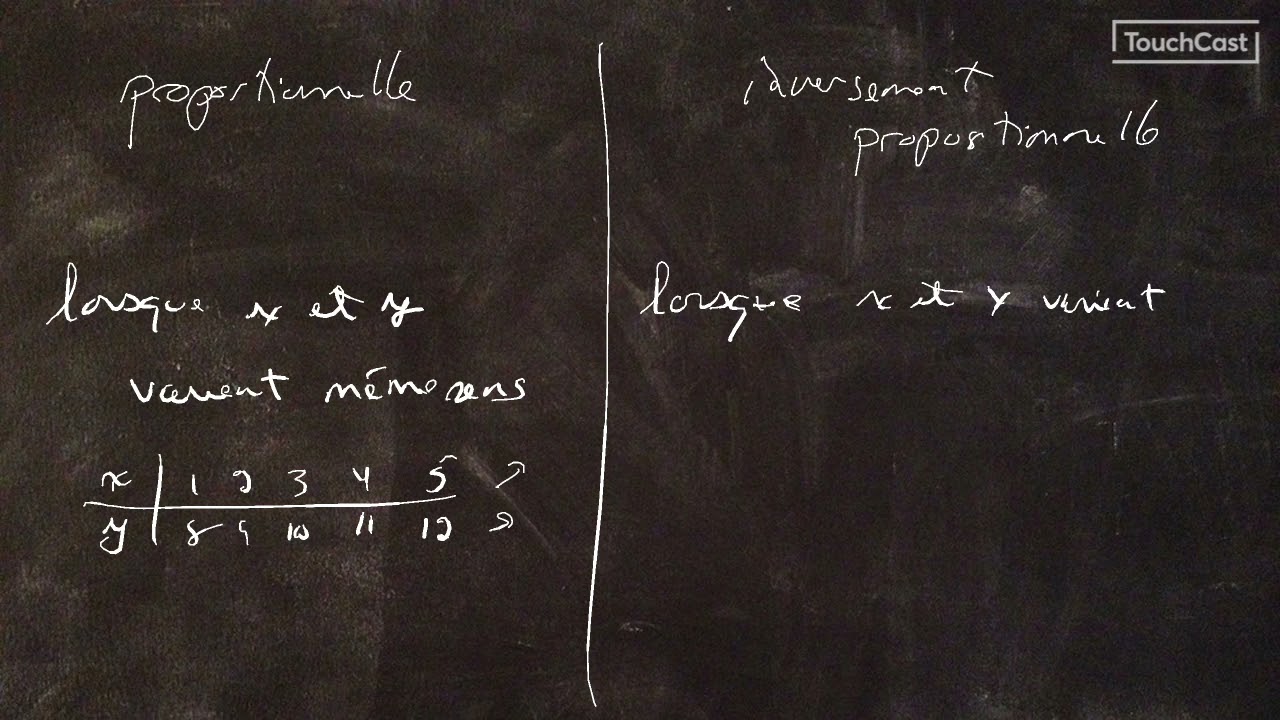 TouchCast
proportionnelle
inversement
proportionnelle
lorsque x et y
varient même sens
x | 1 2 3 4 5 ↗
y | 8 9 10 11 12 ↗
lorsque x et y varient